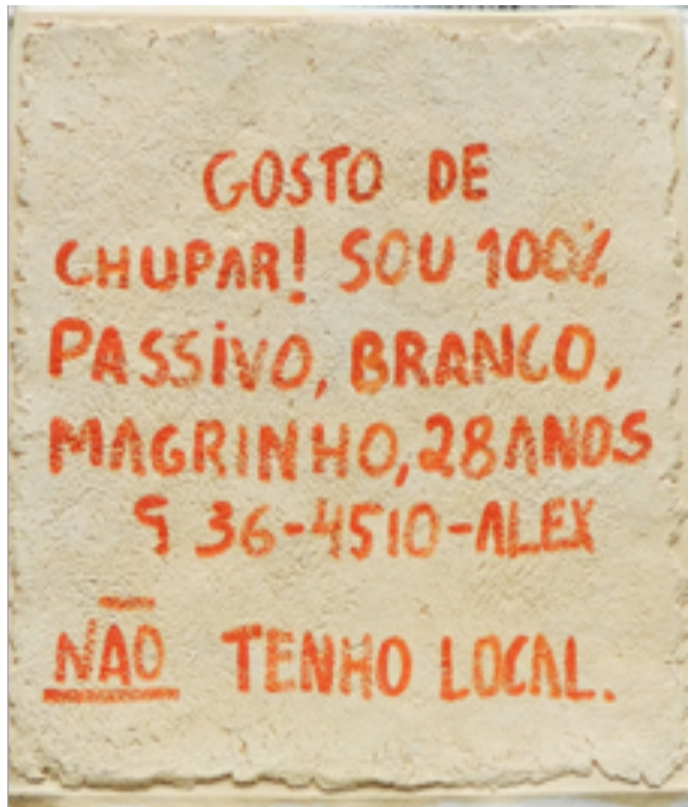 GOSTO DE
CHUPAR! SOU 100%
PASSIVO, BRANCO,
MAGRINHO, 28 ANOS
9 36-4510-ALEX
NÃO TENHO LOCAL.